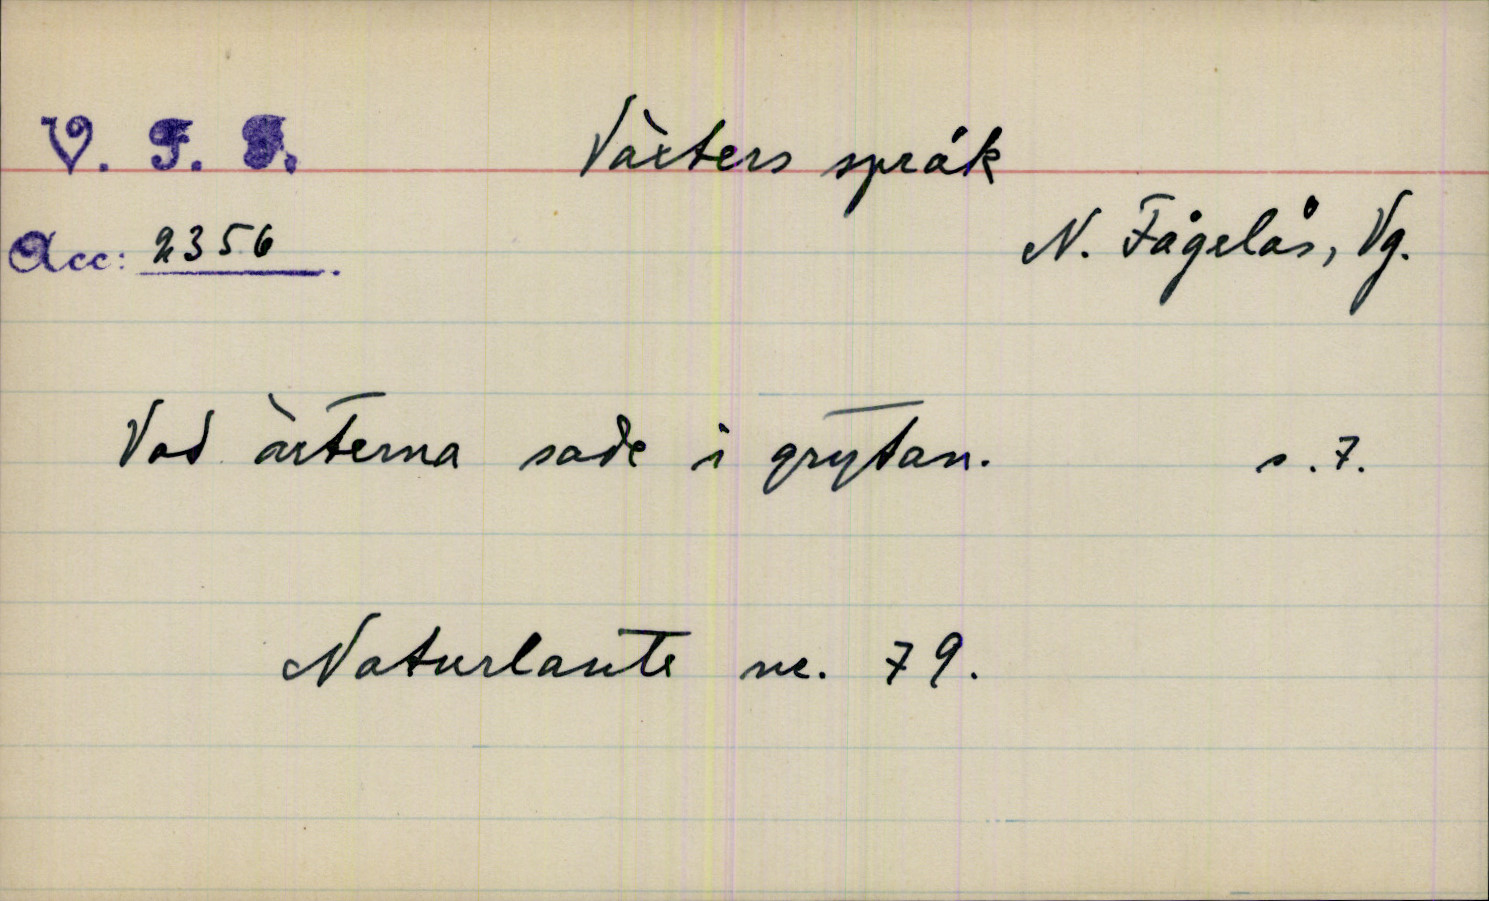 V. F. F.
Växters språk
Acc: 2356.
N. Fågelås, Vg.
Vad ärterna sade i grytan. s. 7.
Naturlaute nr. 79.